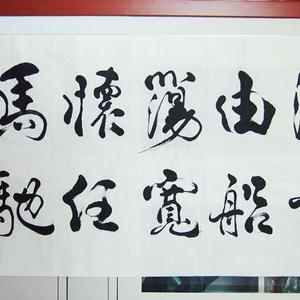 由船
蕩寬
懷任
馬馳